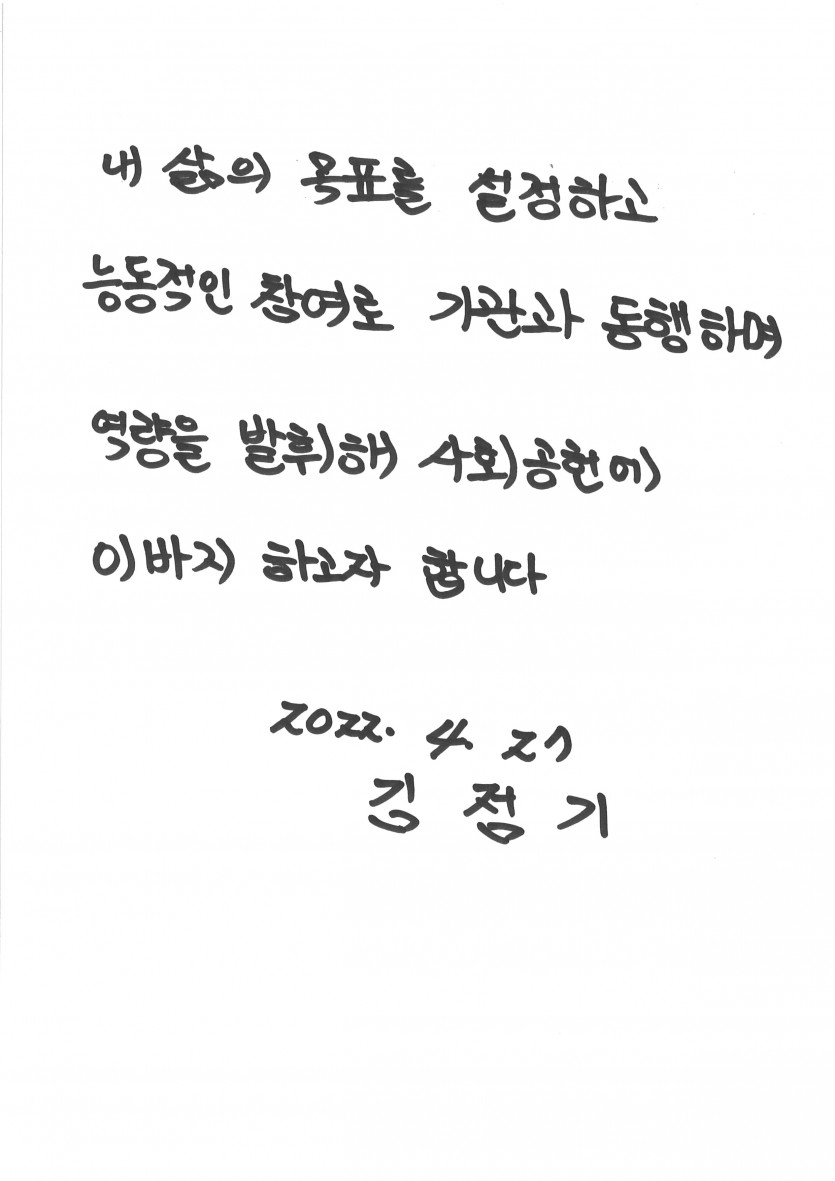 내 삶의 목표를 설정하고
능동적인 참여로 기관과 동행하며
역량을 발휘해 사회공헌에
이바지 하고자 합니다
2022. 4. 27
김정기